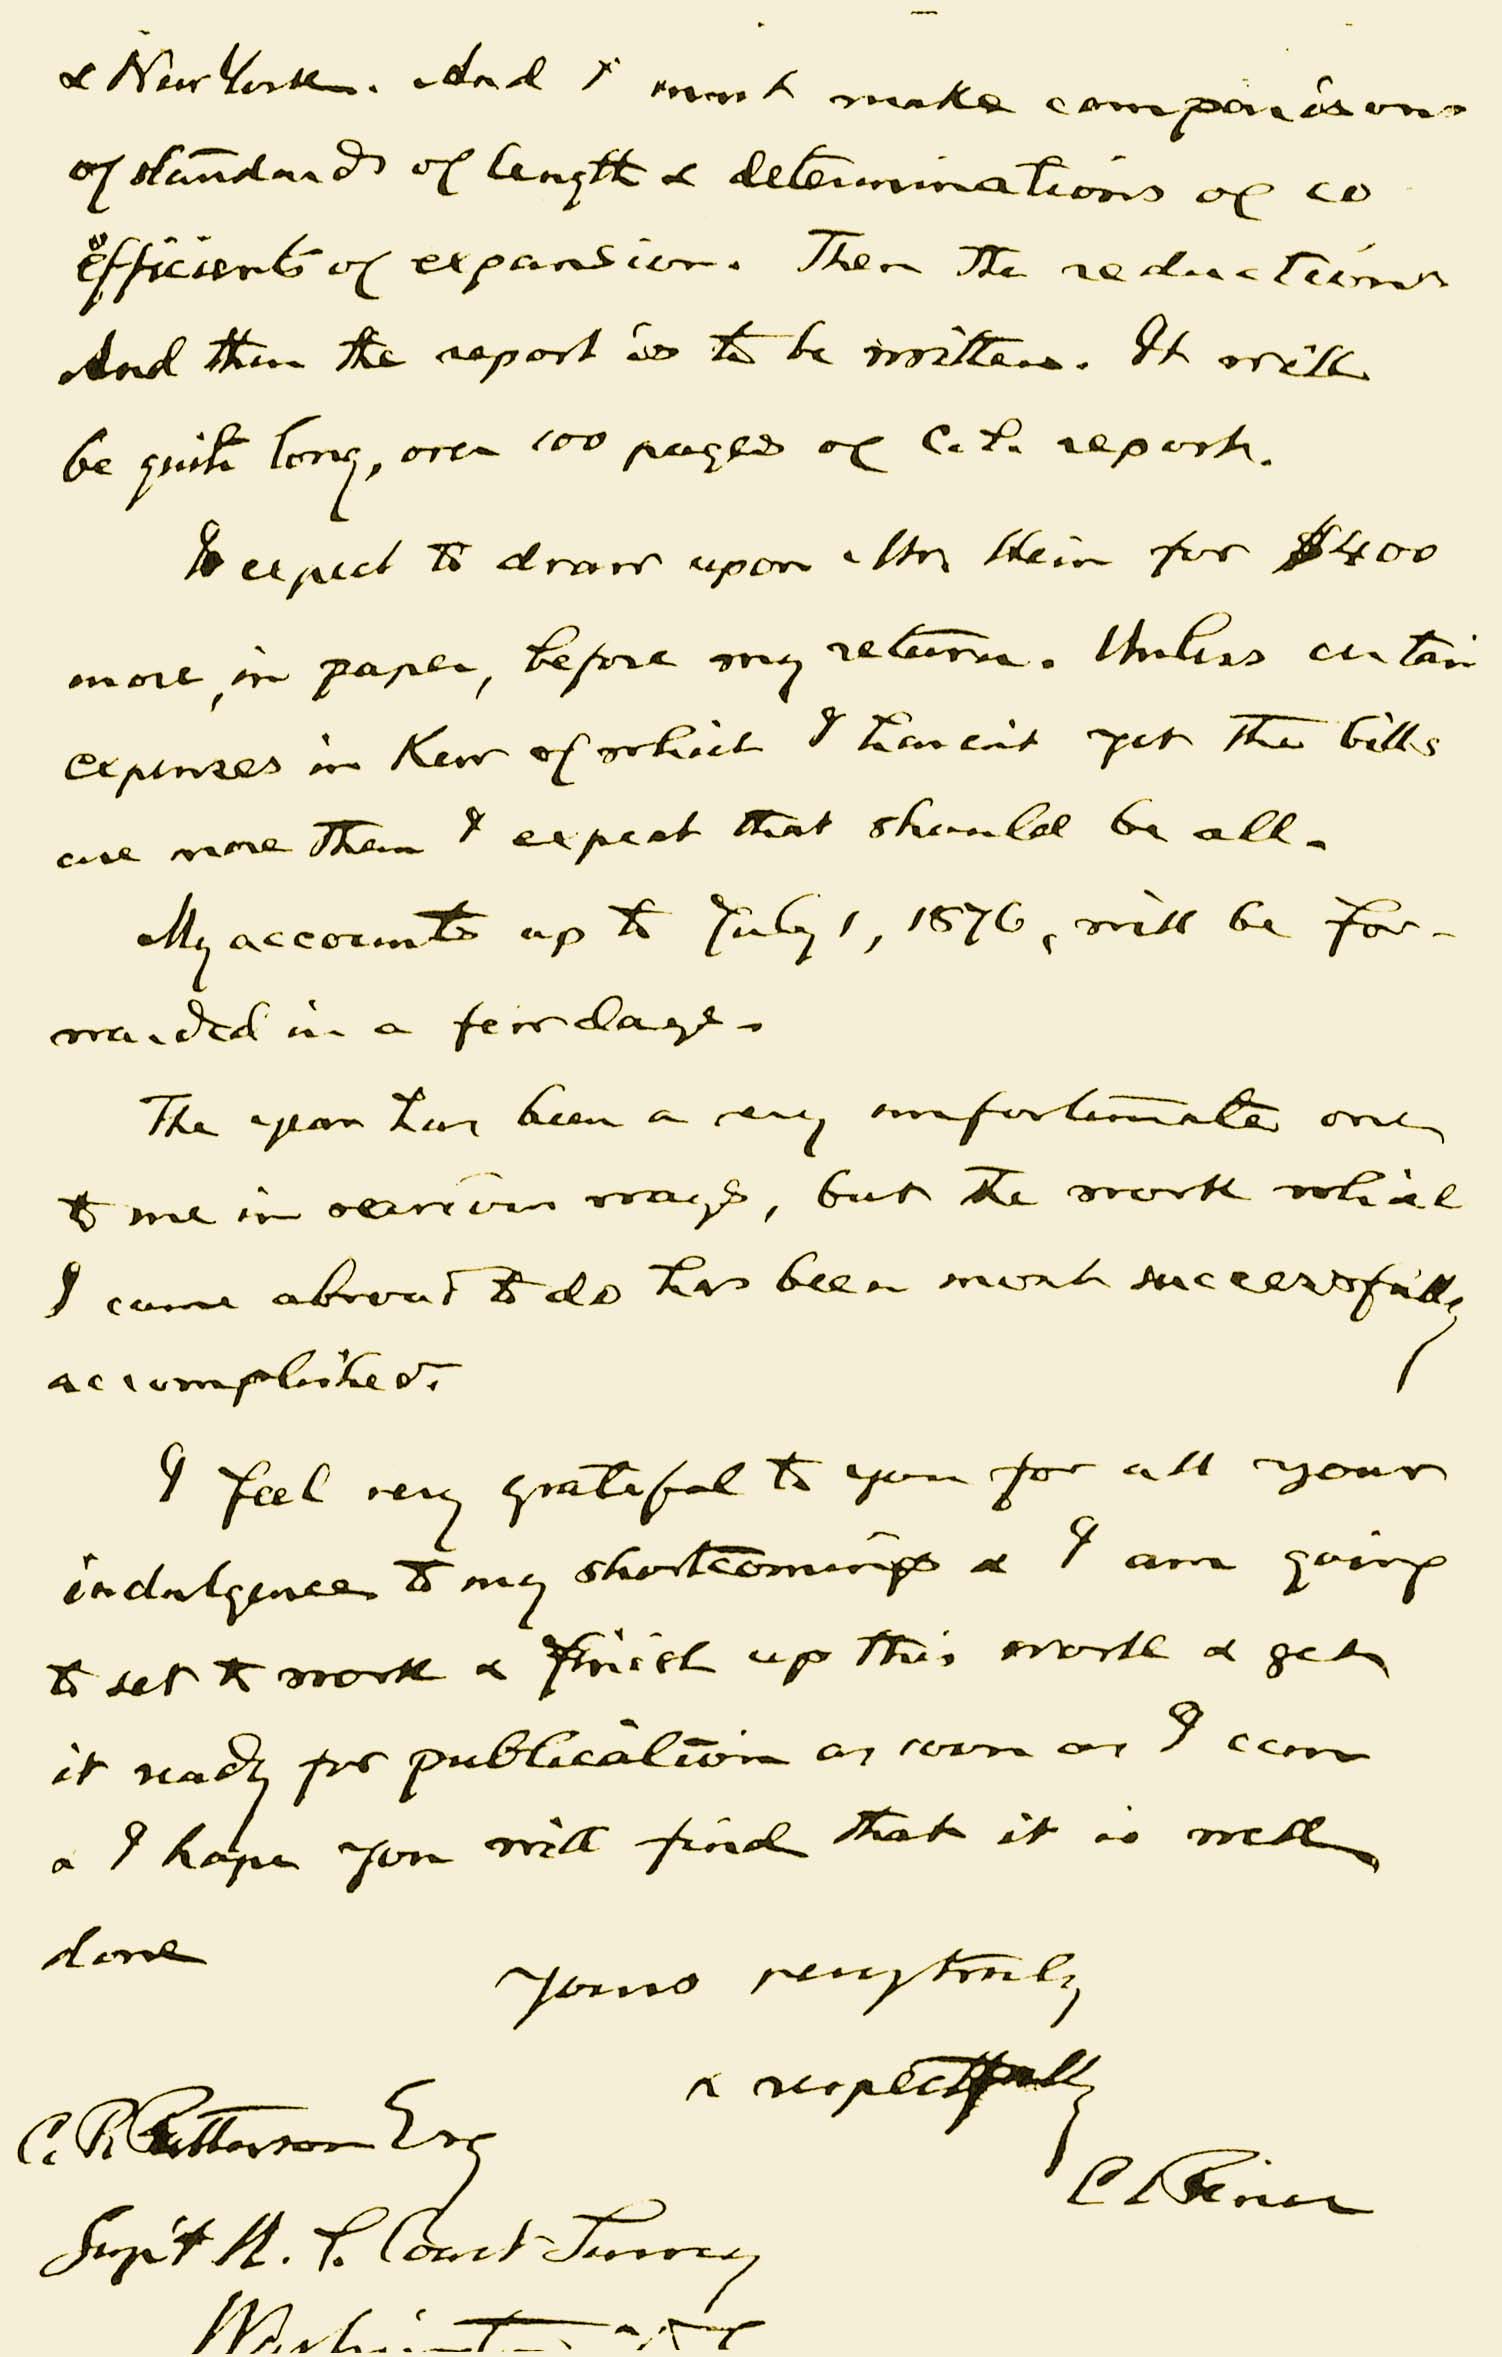 & New York. And I must make comparisons
of standards of length & determinations of co
efficients of expansion. Then the reductions
And then the report is to be written. It will
be quite long, over 100 pages of C.S. report.
I expect to draw upon Mr Hein for $400
more, in paper, before my return. Unless certain
expenses in Kew of which I haven't yet the bills
are more than I expect that should be all.
My accounts up to July 1, 1876, will be for-
warded in a few days.
The year has been a very unfortunate one
to me in various ways, but the work which
I came abroad to do has been most successfully
accomplished.
I feel very grateful to you for all your
indulgence to my shortcomings & I am going
to set to work & finish up this work & get
it ready for publication as soon as I can
& I hope you will find that it is well
done
Yours very truly
& respectfully
C. P. Patterson Esq
C S Peirce
Sup't U. S. Coast Survey
Washington DC